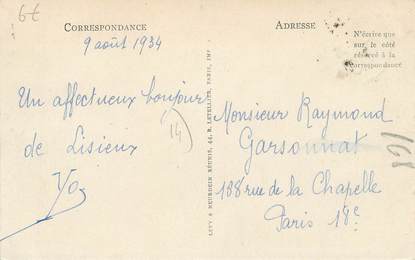 6€
CORRESPONDANCE
9 août 1934
Un affectueux bonjour
de Lisieux
Yo
14
LEVY & NEURDEIN RÉUNIS, 44, R. LETELLIER, PARIS, IMP
ADRESSE
N'écrire que
sur le côté
réservé à la
correspondance
Monsieur Raymond
Garsonnat
188 rue de la Chapelle
Paris 18e
168